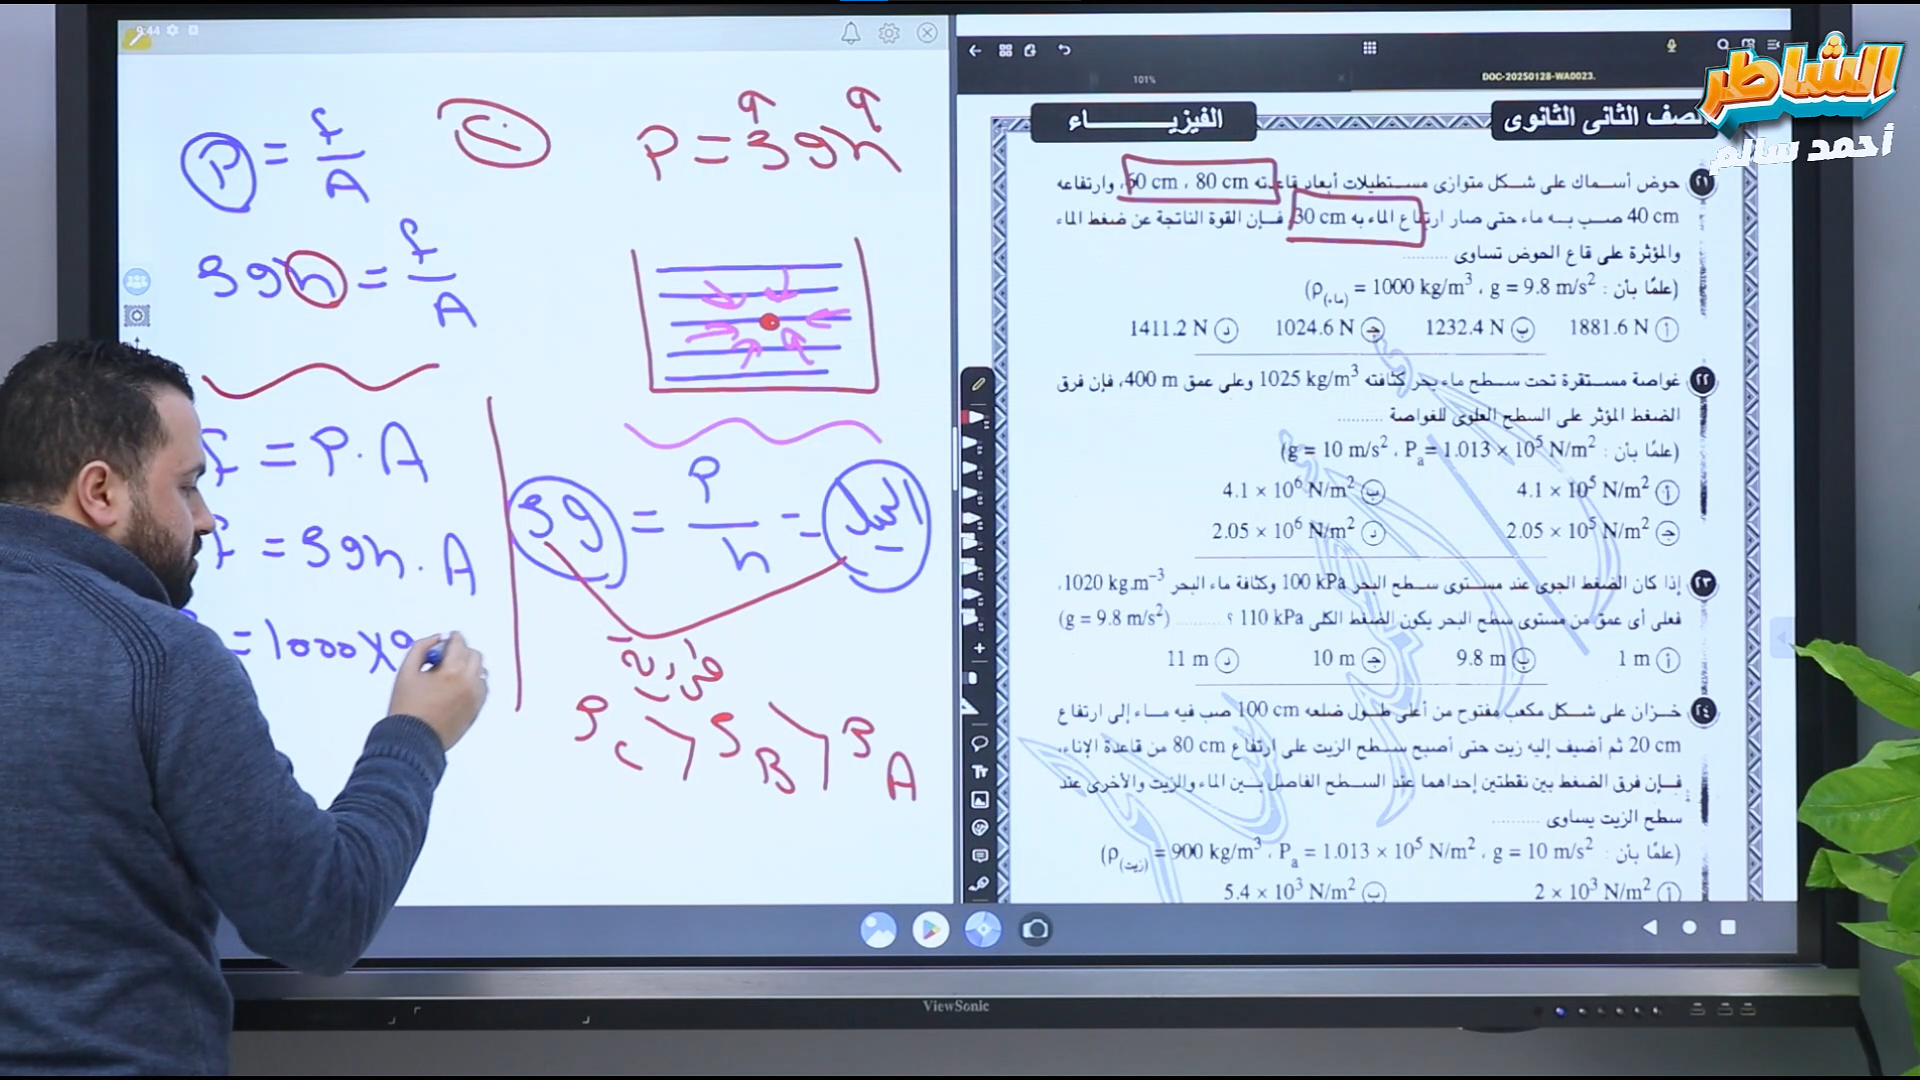 9:44
P = f/A
ρgh = f/A
f = P. A
f = ρgh. A
= 1000 x 9
ج
P = ρgh
ρg = P/h = الميل
ρC > ρB > ρA
101%
DOC-20250128-WA0023.
الشاطر
أحمد سالم
الصف الثانى الثانوى
الفيزيـــاء
٢١ حوض أسماك على شكل متوازى مستطيلات أبعاد قاعدته 60 cm ، 80 cm، وارتفاعه
40 cm صب به ماء حتى صار ارتفاع الماء به 30 cm، فإن القوة الناتجة عن ضغط الماء
والمؤثرة على قاع الحوض تساوى ..........
(علمًا بأن : ρ(ماء) = 1000 kg/m³ ، g = 9.8 m/s²)
أ 1881.6 N ب 1232.4 N ج 1024.6 N د 1411.2 N
٢٢ غواصة مستقرة تحت سطح ماء بحر كثافته 1025 kg/m³ وعلى عمق 400 m، فإن فرق
الضغط المؤثر على السطح العلوى للغواصة ..........
(علمًا بأن : g = 10 m/s² ، Pa = 1.013 × 10⁵ N/m²)
أ 4.1 × 10⁵ N/m² ب 4.1 × 10⁶ N/m²
ج 2.05 × 10⁵ N/m² د 2.05 × 10⁶ N/m²
٢٣ إذا كان الضغط الجوى عند مستوى سطح البحر 100 kPa وكثافة ماء البحر 1020 kg.m⁻³،
فعلى أى عمق من مستوى سطح البحر يكون الضغط الكلى 110 kPa ؟ .......... (g = 9.8 m/s²)
أ 1 m ب 9.8 m ج 10 m د 11 m
٢٤ خزان على شكل مكعب مفتوح من أعلى طول ضلعه 100 cm صب فيه ماء إلى ارتفاع
20 cm ثم أضيف إليه زيت حتى أصبح سطح الزيت على ارتفاع 80 cm من قاعدة الإناء،
فإن فرق الضغط بين نقطتين إحداهما عند السطح الفاصل بين الماء والزيت والأخرى عند
سطح الزيت يساوى ..........
(علمًا بأن : ρ(زيت) = 900 kg/m³ ، Pa = 1.013 × 10⁵ N/m² ، g = 10 m/s²)
أ 2 × 10³ N/m² ب 5.4 × 10³ N/m²
ViewSonic